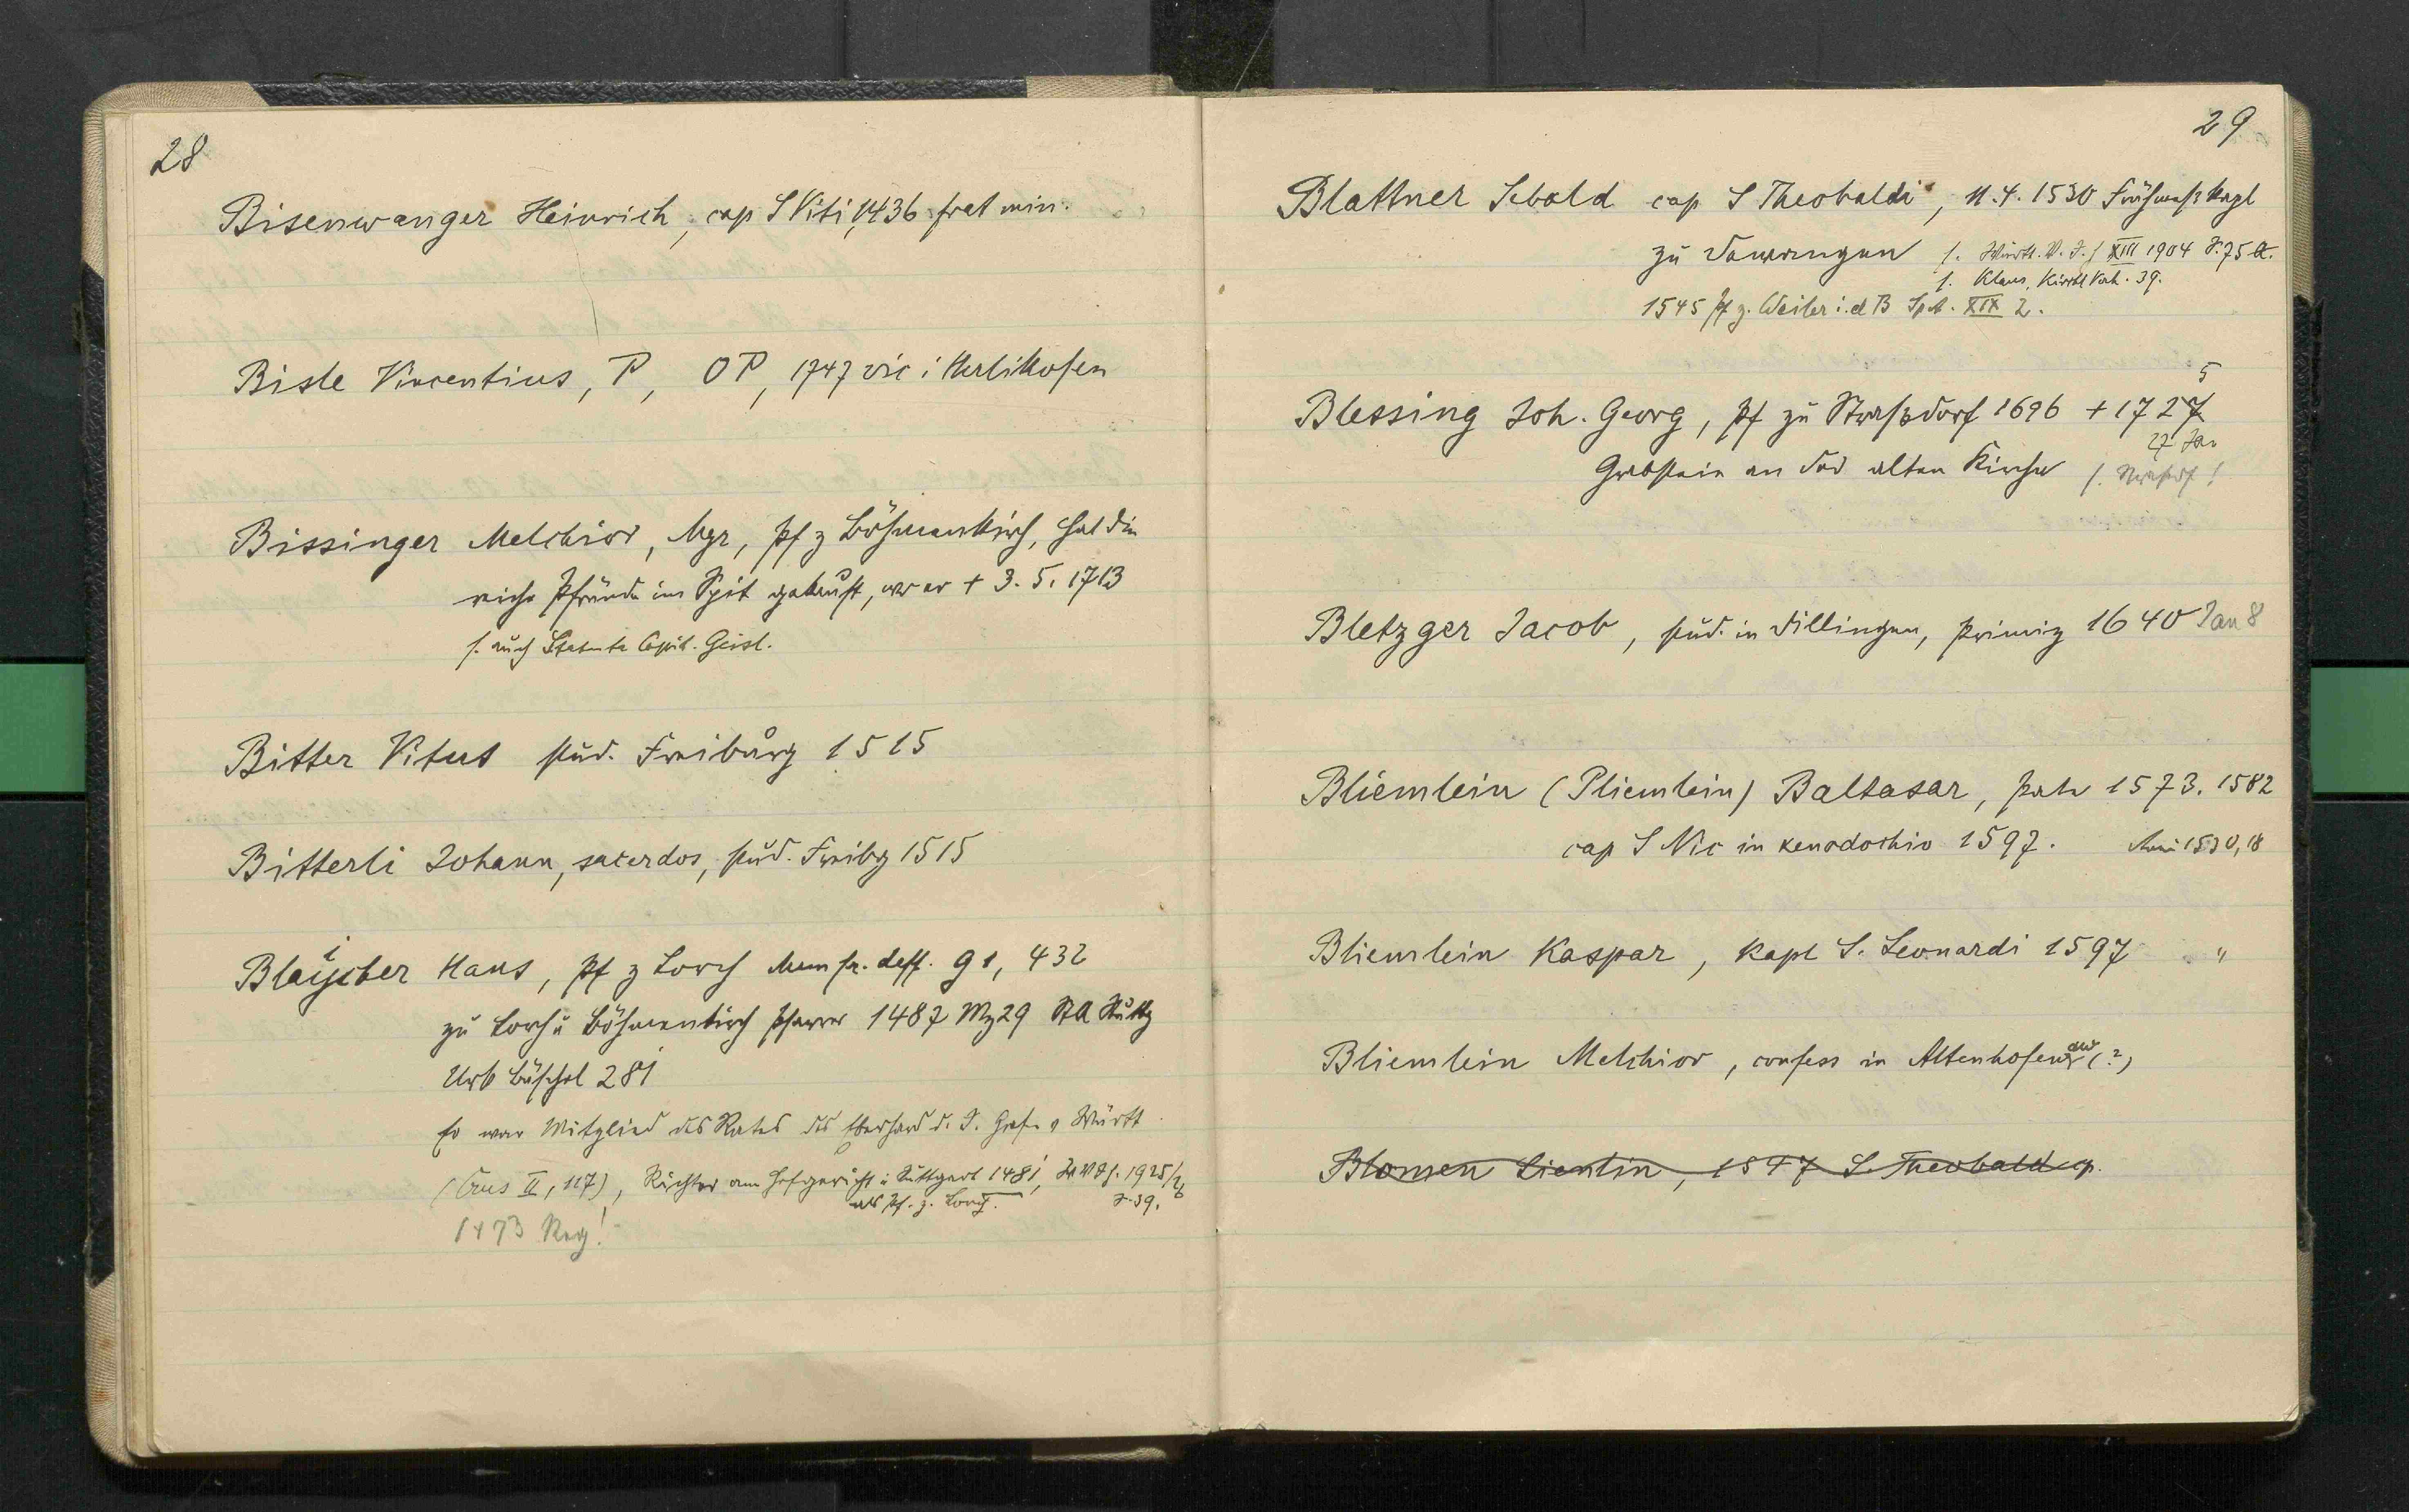 28
Bisenwanger Heinrich, cap S Viti, 1436 frat min.
Bisle Vincentius, P, OP, 1747 vic i Herlikofen
Bissinger Melchior, Mgr, Pf z Böhmenkirch, hat die
reiche Pfründe im Spit gekauft, wo er + 3. 5. 1713
s. auch Statuta Capit. Geisl.
Bitter Vitus stud. Freiburg 1515
Bitterli Johann, sacerdos, stud. Freibg 1515
Blaÿcher Hans, Pf z Lorch 91, 432
i
zu Lorch u Böhmenkirch Pfarrer 1487 Mz 29 StA Stuttg
Urk Büschel 281
Er war Mitglied des Rates des Eberhard d. J. Graf v Württ
(Crus II, 117), Richter am Hofgericht i Stuttgart 1481, 1925/26
als Pf. z. Lorch. S. 39.
1473 Reg!
29
Blattner Sebald cap S Theobaldi, 11. 4. 1530 Frühmeß Kapl
zu s. Württ. V. J. / XIII 1904 S. 75 A.
s. Klaus, Kirchl Verh. 39.
1545 Pf z. Weiler i. d B SpA. XIX 2.
Blessing Joh. Georg, Pf zu Straßdorf 1696 + 1727
5
27 Jan
Grabstein an der alten Kirche s. Straßdf!
Bletzger Jacob, stud. in Dillingen, Primiz 1640 Jan 8
Bliemlein (Pliemlein) Baltasar, 1573. 1582
cap S Nic in xenodochio 1597. 1530, 18
Bliemlein Kaspar, Kapl S. Leonardi 1597 "
Bliemlein Melchior, confess in Altenhofen (?)
Blomen Lientlin, 1547 S. Theobald cp.